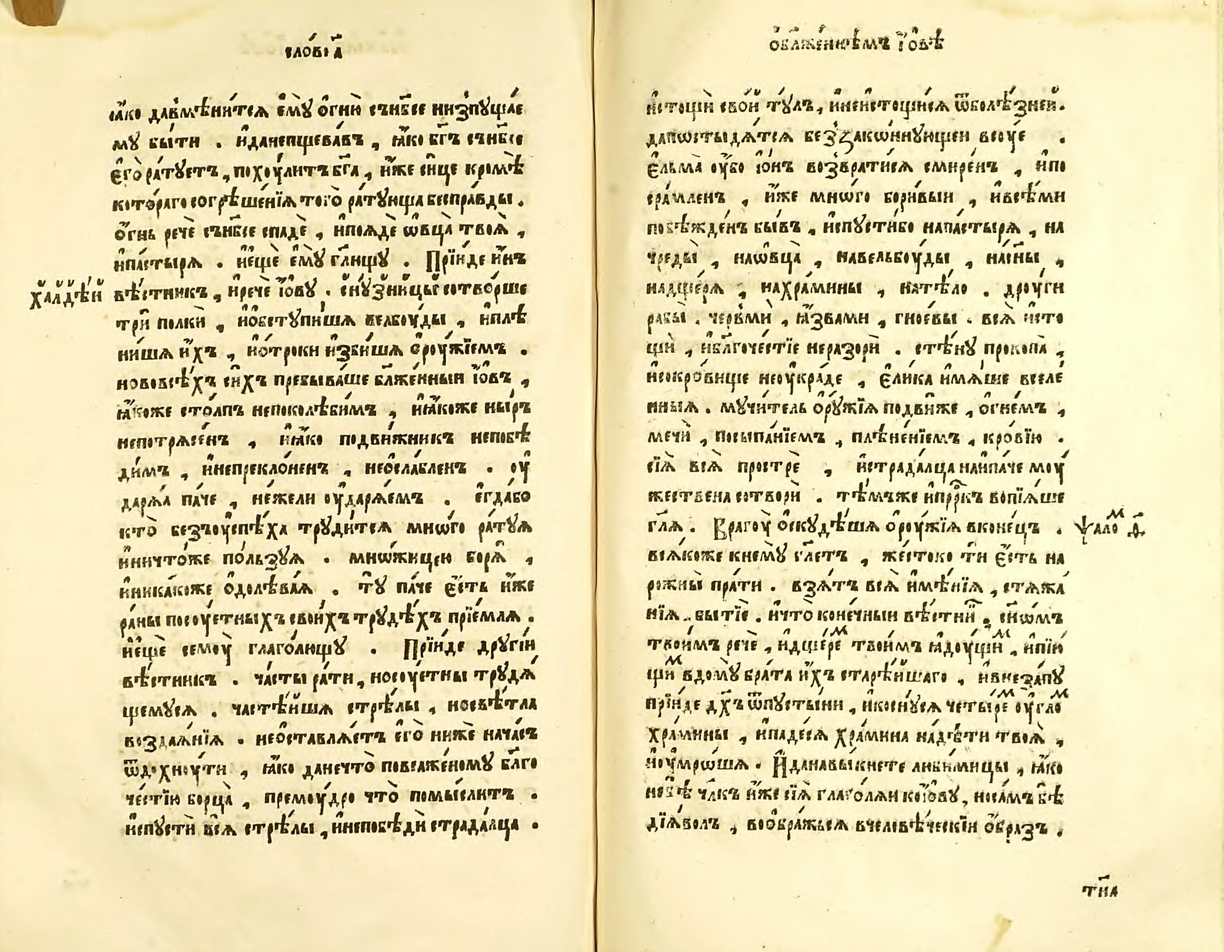 сло́во а҃і
ꙗ҆́ко давмѣни́тсѧ є҆мꙋ̀ ѻ҆гню̀ съ нб҃се низпꙋща́е
мꙋ бы́ти . и҆данепщева́въ , ꙗ҆́ко бг҃ъ съ нб҃се
є҆го̀ ра́тꙋетъ , похꙋ́литъ бг҃а , и҆́же си́це кромѣ̀
кото́раго согрѣше́нїѧ того̀ ра́тꙋюща бесправды .
ѻ҆́гнь речѐ съ нб҃се спадѐ , и҆поꙗдѐ ѡ҆вца̀ твоѧ̀ ,
и҆па́стырѧ . и҆є҆щѐ є҆мꙋ̀ гл҃ющꙋ . Прїи́де и҆́нъ
халдѣ́и
вѣ́стникъ , и҆речѐ і҆́ѡвꙋ . сиꙋ́зницы сотво́рше
трѝ полкѝ , и҆ѡ҆бстꙋпи́шѧ велбꙋ́ды , и҆плѣ
ни́шѧ и҆́хъ , и҆ѻ҆́троки и҆зби́шѧ ѻ҆рꙋ́жїемъ .
нововсѣ́хъ си́хъ пребыва́ше бл҃же́нныи і҆́ѡвъ ,
ꙗ҆́коже сто́лпъ непоколѣби́мъ , и҆ꙗ҆́коже ны́ръ
непотрѧсе́нъ , и҆ꙗ҆́ко подви́жникъ непобѣ
ди́мъ , и҆непреклоне́нъ , неѡ҆сла́бленъ . оу҆
дарѧ́ѧ па́че , не́жели оу҆дарѧ́емъ . є҆гда́бо
кто̀ безъꙋспѣ́ха трꙋ́дитсѧ мно́го ра́тꙋѧ
и҆ничто́же по́льзꙋѧ . мно́жицею борѧ̀ ,
и҆ника́коже ѻ҆долѣва́ѧ . тꙋ̀ па́че є҆́сть и҆́же
ра́ны посꙋетныхъ свои́хъ трꙋдѣ́хъ прїе́млѧ .
и҆є҆щѐ семꙋ̀ глаго́лющꙋ . Прїи́де дрꙋгі́и
вѣ́стникъ . ча́сты ра́ти , носꙋ́етны трꙋдѧ́
щемꙋсѧ . частѣ́ишѧ стрѣ́лы , носвѣ́тла
воздаѧ́нїѧ . неѡ҆ставлѧ́етъ є҆го̀ ниже нача́съ
ѿдохнꙋ́ти , ꙗ҆́ко данечто̀ повеле́номꙋ бл҃го
че́стїю борца̀ , премꙋ́дро что̀ помы́слитъ .
и҆спꙋстѝ всѧ̀ стрѣ́лы , и҆непобѣдѝ страда́лца .
ѡ҆бл҃же́ннѣмъ і҆́ѡвѣ
и҆стощѝ сво́й тꙋ́лъ , и҆неи҆стощи́сѧ ѿболѣ́зней .
дапостыдѧ́тсѧ беззако́ннꙋющеи всꙋе .
є҆льма̀ оу҆́бо і҆́ѡнъ возврати́сѧ смире́нъ , и҆по
сра́мленъ , и҆́же мно́го бори́выи , и҆всѣ́ми
побѣжде́нъ бы́въ , и҆спꙋсти́бо напа́стырѧ , на
чреды̀ , наѡ҆́вца , навельбꙋ́ды , насы́ны ,
надще́рѧ , нахра́мины , натѣ́ло . дрꙋ́ги
рабы̀ . червмѝ , ꙗ҆́звами , гноевы . всѧ̀ и҆сто
щѝ , и҆бл҃гоче́стїе неразорѝ . стѣ́нꙋ прокопа̀ ,
и҆со́кровище неꙋкра́де , є҆ли́ка и҆мѧ́ше вселе
нныѧ . мꙋчи́тель ѻ҆рꙋ́жїѧ подви́же , ѻ҆гне́мъ ,
мечѝ , посы́панїемъ , плѣне́нїемъ , кро́вїю .
сїѧ̀ всѧ̀ прострѐ , и҆страда́лца наипа́че мꙋ́
жествена сотворѝ . тѣ́мъже и҆прⷪ҇ркъ вопїѧ́ше
гл҃ѧ . Врагꙋ̀ ѻ҆скꙋдѣ́шѧ ѻ҆рꙋ́жїѧ вконе́цъ .
ѱало́м ѳ҃ .
всѧ́коже кнемꙋ̀ гл҃етъ , же́стоко тѝ є҆́сть на
рожны̀ пра́ти . взѧ́тъ всѧ̀ и҆мѣ́нїѧ , стѧжа́
нїѧ . бытїѐ . и҆что̀ коне́чныи вѣ́стникъ , сыно́мъ
твои́мъ речѐ , и҆дще́рем твои́мъ ꙗ҆дꙋ́щим , и҆пїю́
щим вдомꙋ̀ бра́та и҆́хъ старѣ́ишаго , и҆внеза́пꙋ
прїи́де дх҃ъ ѿпꙋсты́ни , и҆коснꙋ́сѧ четы́рем оу҆гло́м
хра́мины , и҆паде́сѧ хра́мина надѣ́ти твоѧ̀ ,
и҆оу҆мро́шѧ . И҆ данавы́кнете люби́мицы , ꙗ҆́ко
небѣ̀ чл҃къ и҆́же сїѧ̀ глаго́лѧи коі҆́ѡвꙋ , носа́мъ бѣ̀
дїѧ́волъ , воѡбра́жьсѧ вчеловѣ́ческїи ѻ҆́бразъ .
тиа